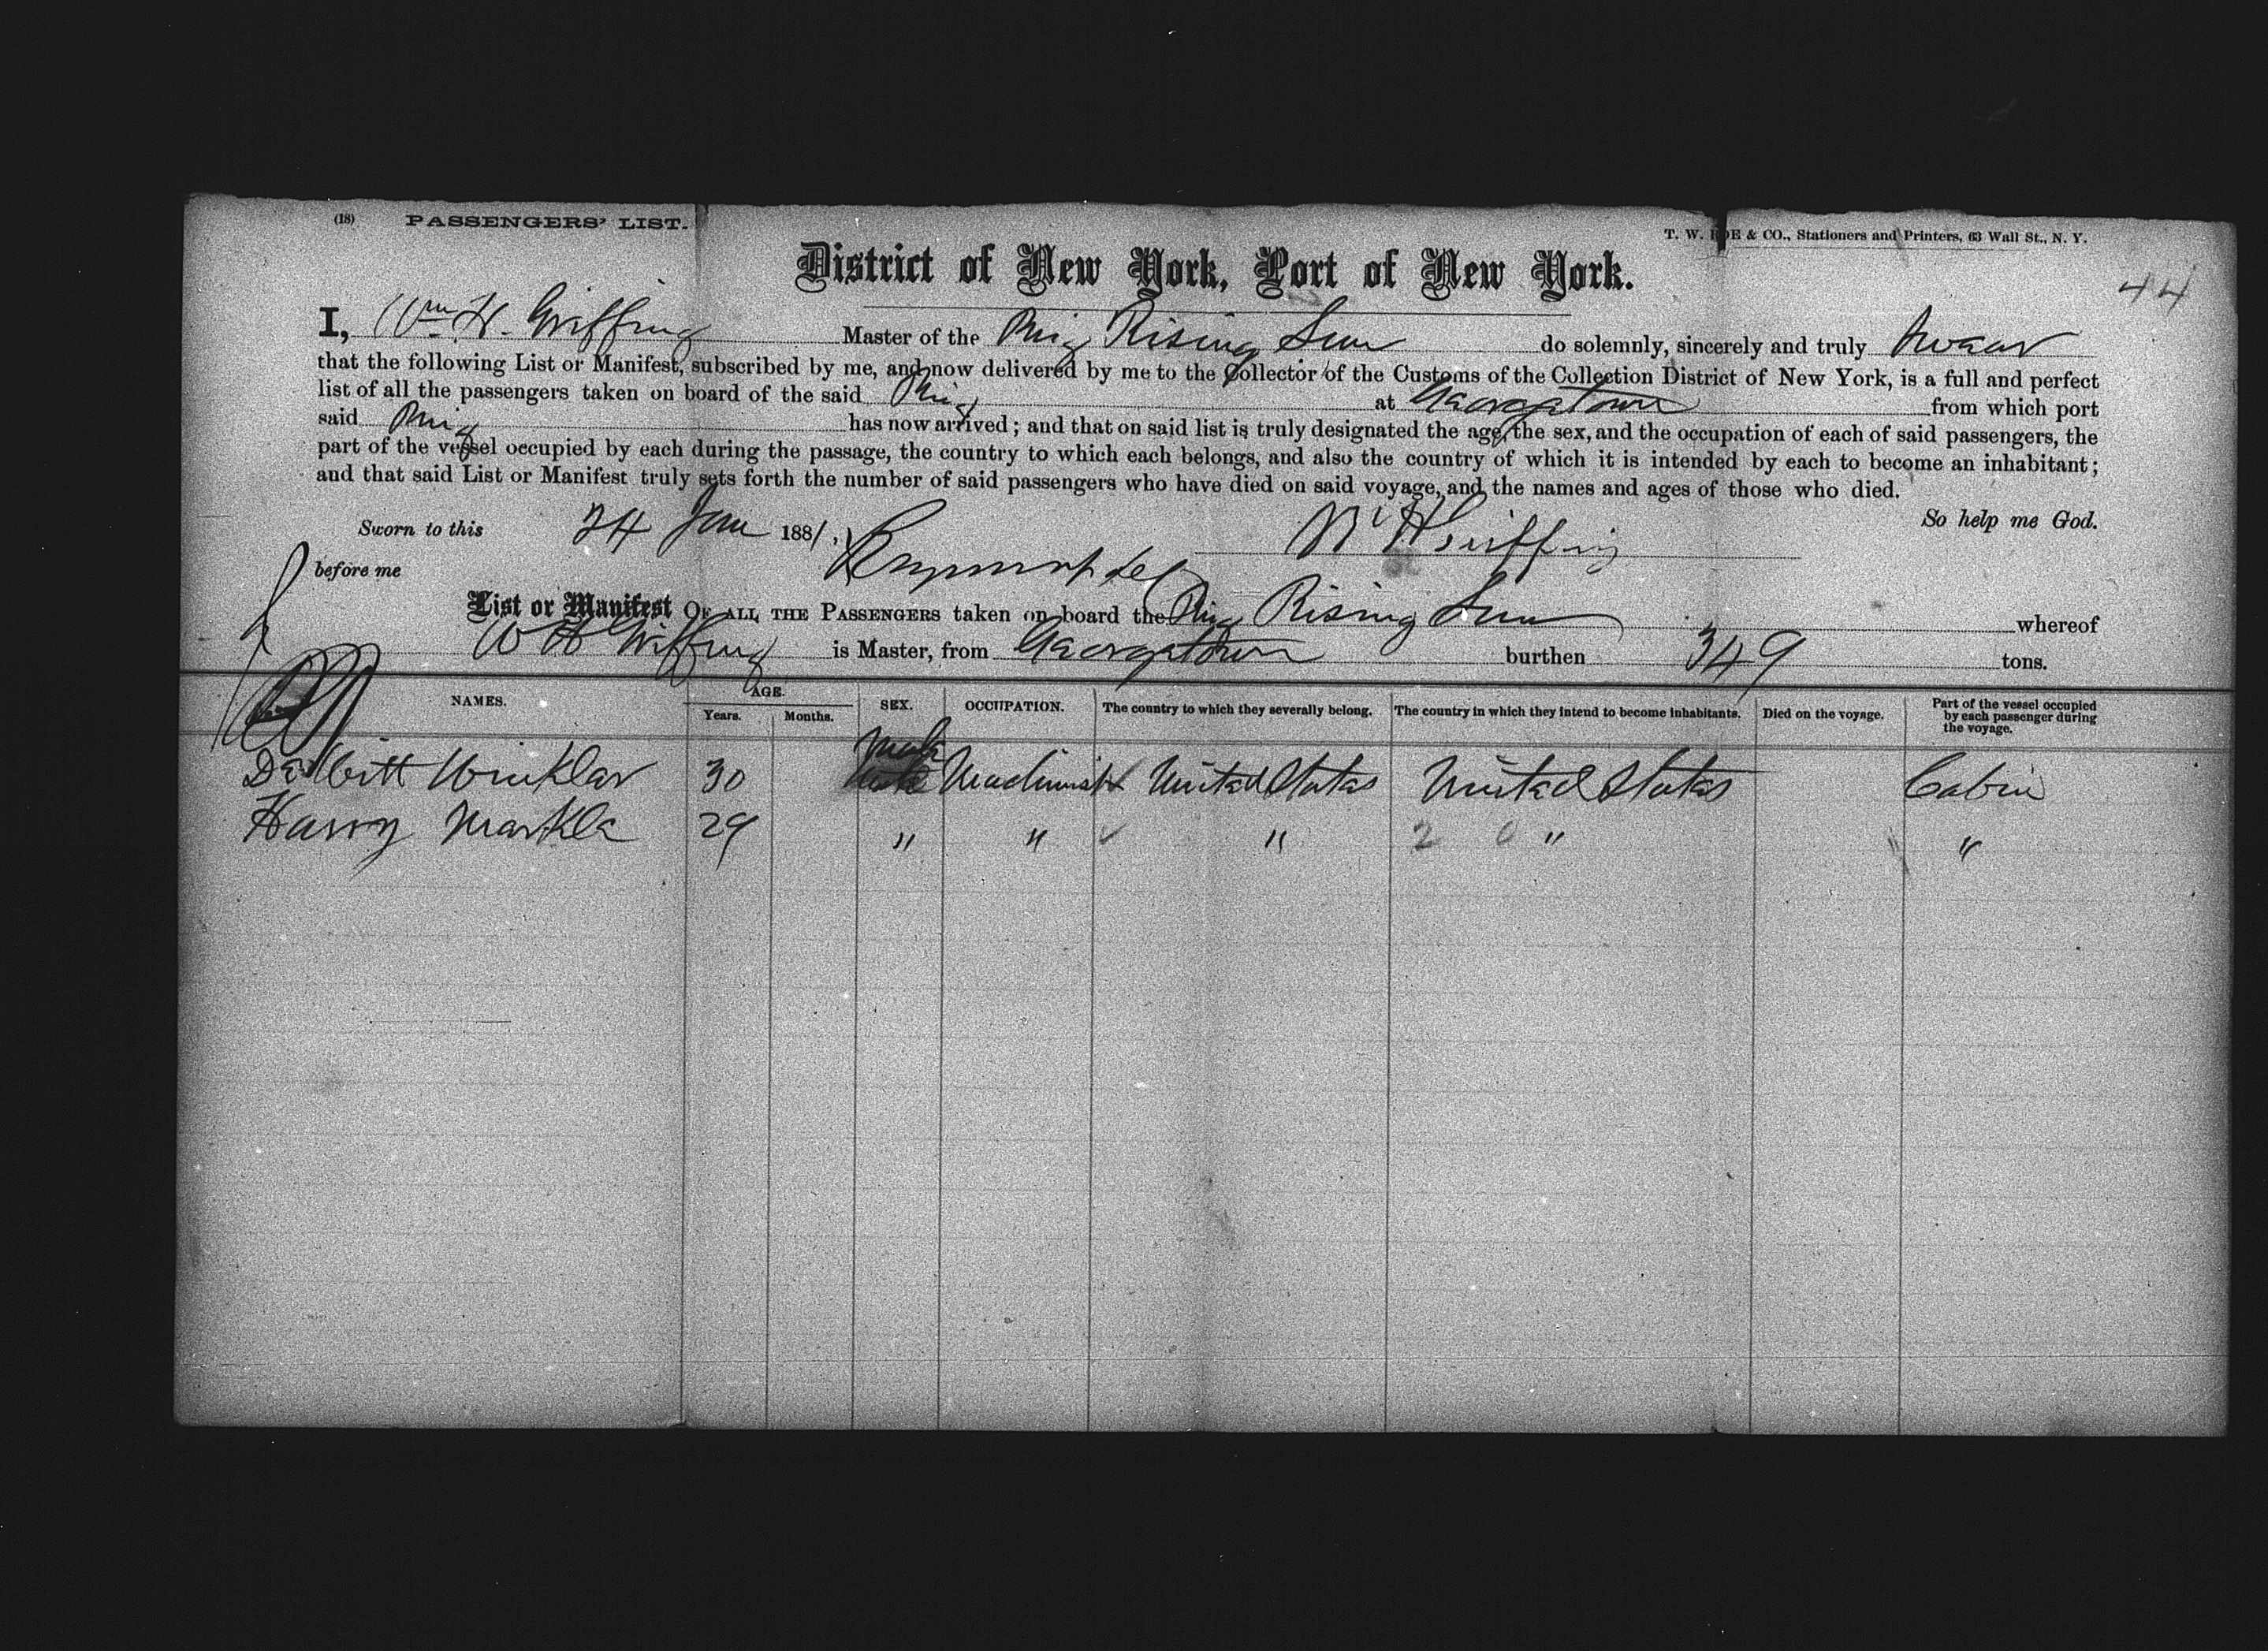 (18) PASSENGERS' LIST.
T. W. & CO., Stationers and Printers, 63 Wall St., N. Y.
District of New York, Port of New York.
44
I, Wm H. Griffing Master of the Brig Rising Sun do solemnly, sincerely and truly swear
that the following List or Manifest, subscribed by me, and now delivered by me to the Collector of the Customs of the Collection District of New York, is a full and perfect
list of all the passengers taken on board of the said Brig at Georgetown from which port
said Brig has now arrived; and that on said list is truly designated the age, the sex, and the occupation of each of said passengers, the
part of the vessel occupied by each during the passage, the country to which each belongs, and also the country of which it is intended by each to become an inhabitant;
and that said List or Manifest truly sets forth the number of said passengers who have died on said voyage, and the names and ages of those who died.
So help me God.
Sworn to this 24 Jan 1881, W H Griffing
before me
List or Manifest OF ALL THE PASSENGERS taken on board the Brig Rising Sun whereof
W H Griffing is Master, from Georgetown burthen 349 tons.
NAMES. AGE. Years. Months. SEX. OCCUPATION. The country to which they severally belong. The country in which they intend to become inhabitants. Died on the voyage. Part of the vessel occupied by each passenger during the voyage.
DeWitt Winkler 30 Male Machinist United States United States Cabin
Harry Markle 29 " " " 2 0 " "